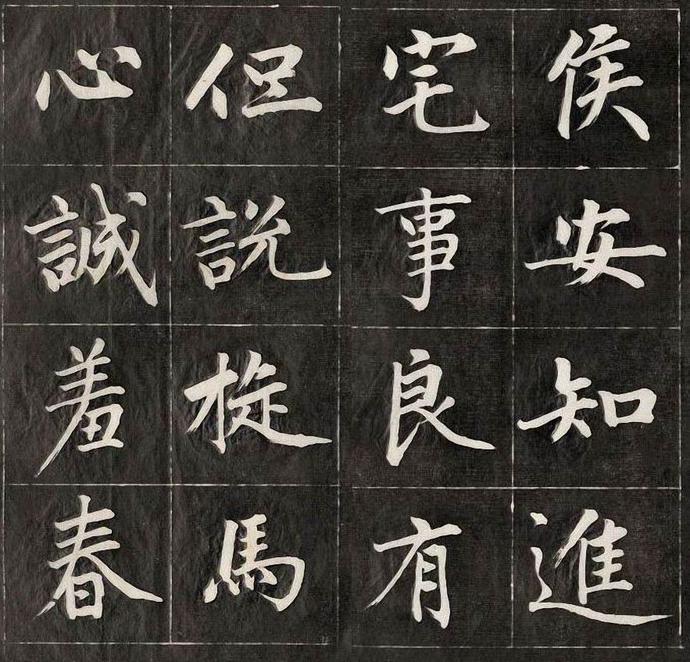 侯安知進
宅事良有
但説旋馬
心誠羞春